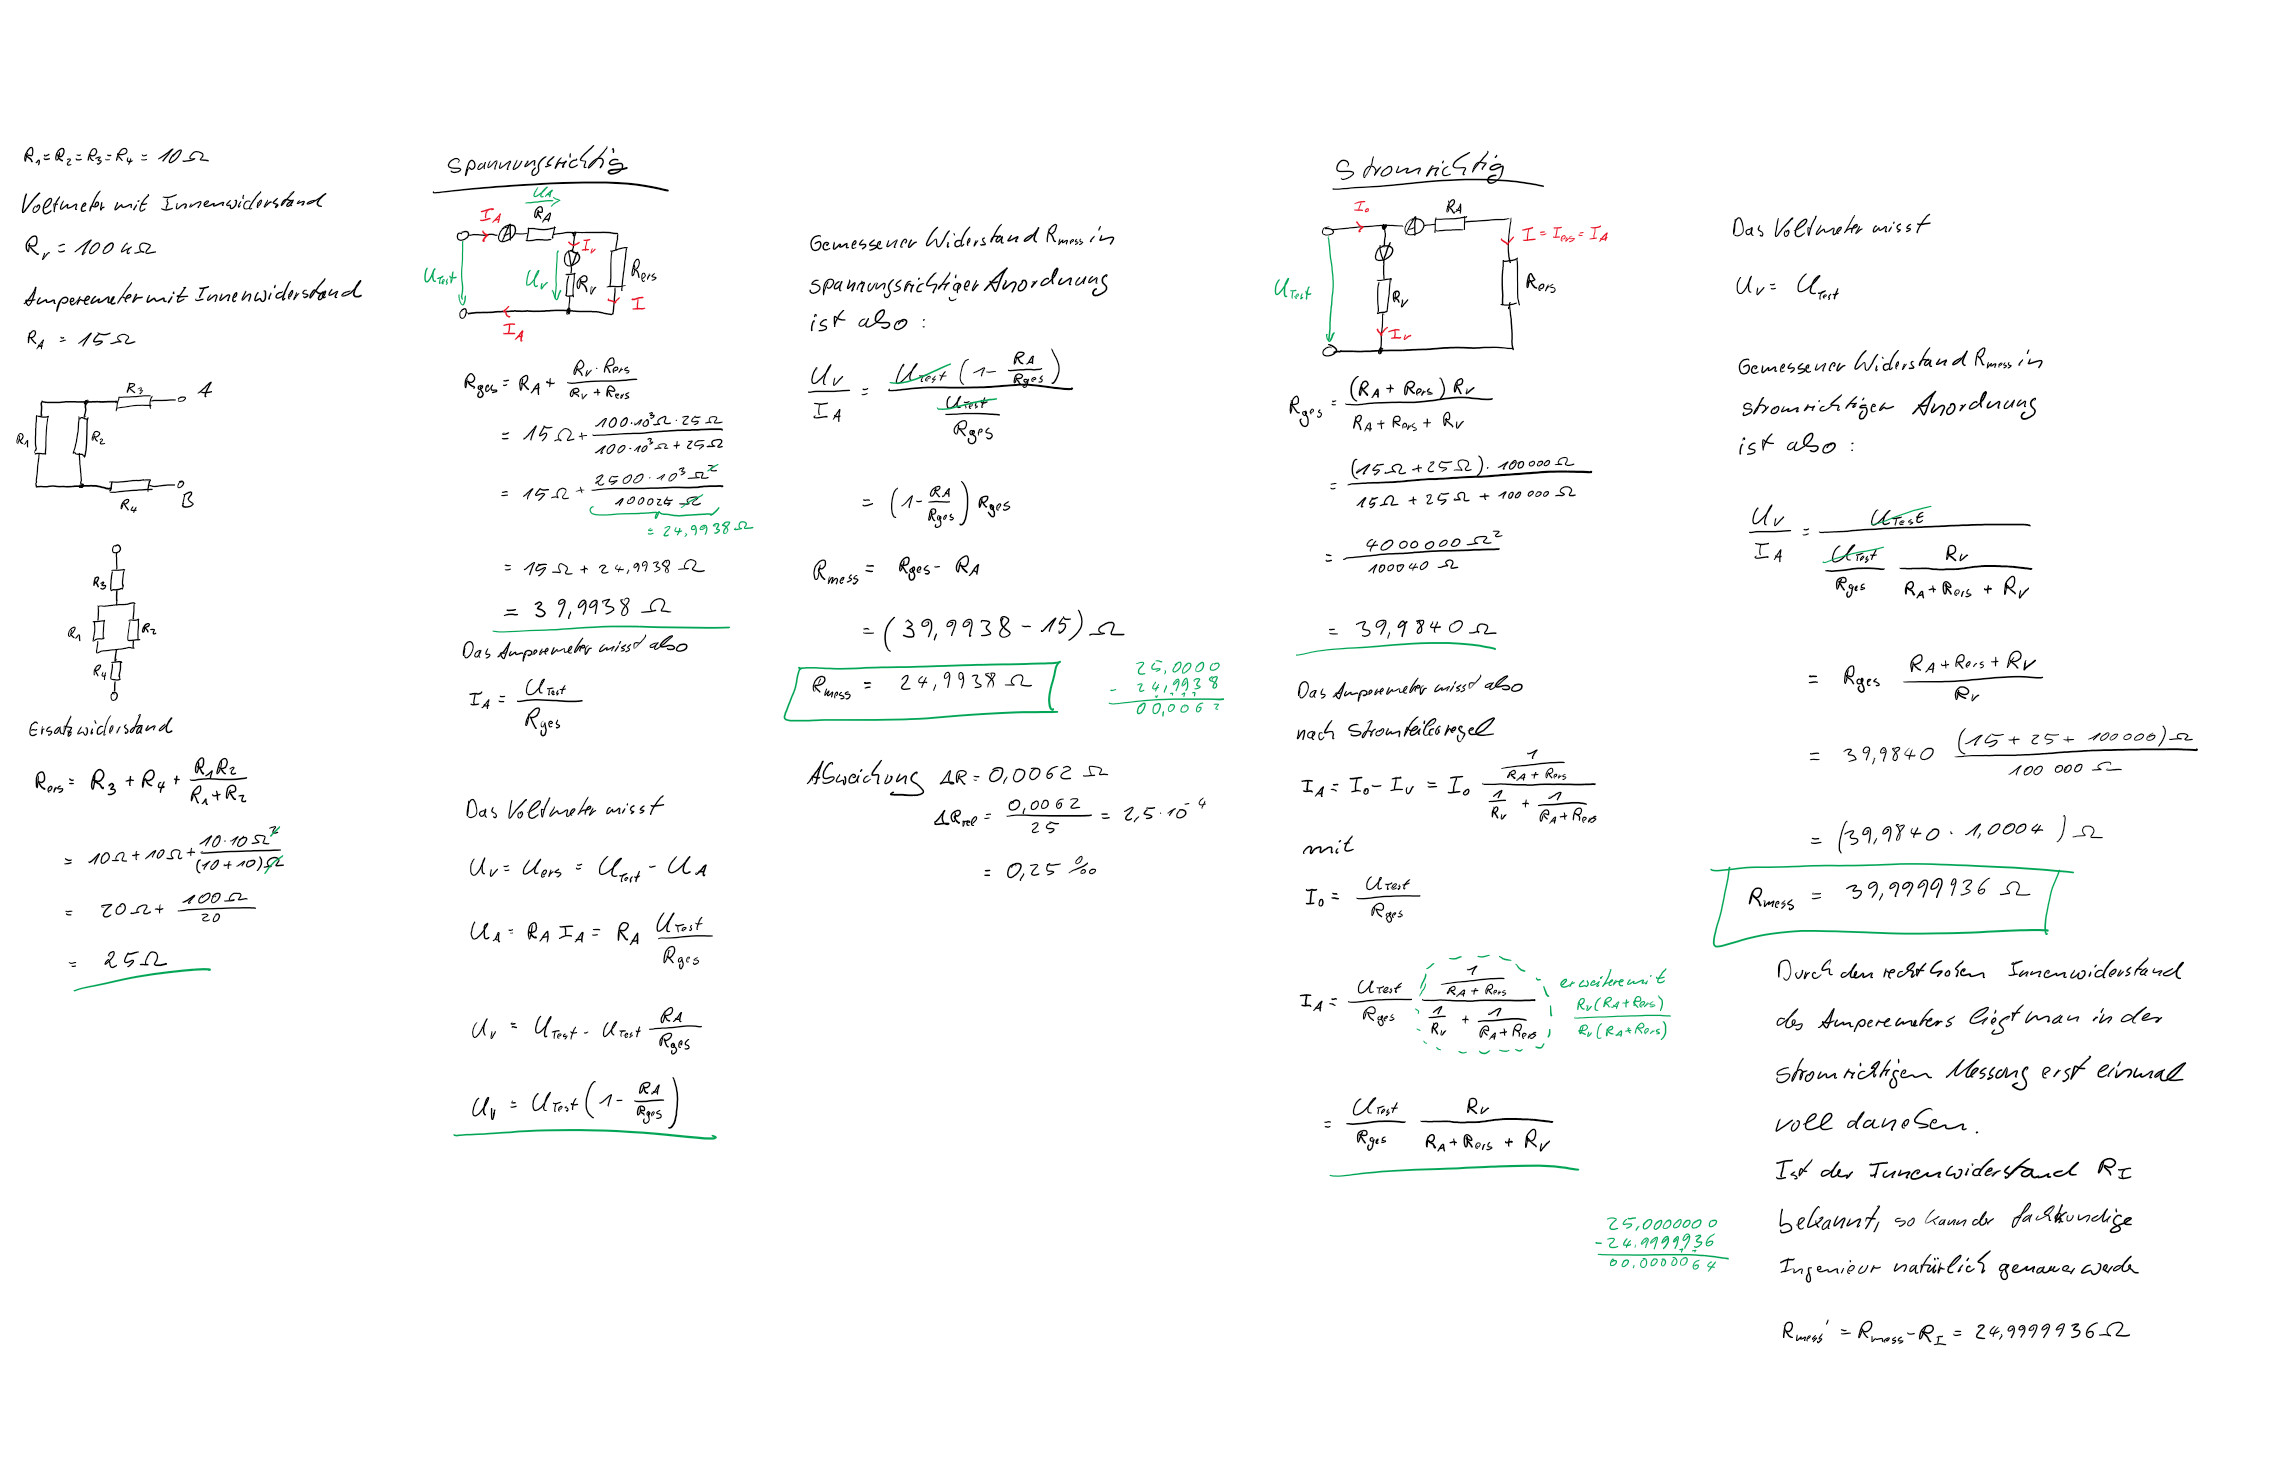 R₁=R₂=R₃=R₄ = 10Ω
Voltmeter mit Innenwiderstand
R_V = 100 kΩ
Amperemeter mit Innenwiderstand
R_A = 15Ω
R₃ A
R₁ R₂
R₄ B
R₃
R₁ R₂
R₄
Ersatzwiderstand
R_ers = R₃ + R₄ + R₁R₂/(R₁+R₂)
= 10Ω + 10Ω + 10·10Ω²/(10+10)Ω
= 20Ω + 100Ω/20
= 25Ω
Spannungsrichtig
U_A
I_A R_A
I_V
U_Test U_V R_V R_ers
I
I_A
R_ges = R_A + R_V·R_ers/(R_V+R_ers)
= 15Ω + 100·10³Ω·25Ω/(100·10³Ω+25Ω)
= 15Ω + 2500·10³Ω²/100025Ω
= 24,9938Ω
= 15Ω + 24,9938Ω
= 39,9938Ω
Das Amperemeter misst also
I_A = U_Test/R_ges
Das Voltmeter misst
U_V = U_ers = U_Test - U_A
U_A = R_A I_A = R_A U_Test/R_ges
U_V = U_Test - U_Test R_A/R_ges
U_V = U_Test (1 - R_A/R_ges)
Gemessener Widerstand R_mess in
spannungsrichtiger Anordnung
ist also:
U_V/I_A = U_Test (1 - R_A/R_ges)/(U_Test/R_ges)
= (1 - R_A/R_ges) R_ges
R_mess = R_ges - R_A
= (39,9938 - 15)Ω
R_mess = 24,9938Ω
25,0000
- 24,9938
00,0062
Abweichung ΔR = 0,0062Ω
ΔR_rel = 0,0062/25 = 2,5·10⁻⁴
= 0,25‰
Stromrichtig
I₀ R_A
I = I_ers = I_A
U_Test R_V R_ers
I_V
R_ges = (R_A + R_ers) R_V/(R_A + R_ers + R_V)
= (15Ω+25Ω)·100000Ω/(15Ω + 25Ω + 100000Ω)
= 4000000Ω²/100040Ω
= 39,9840Ω
Das Amperemeter misst also
nach Stromteilerregel
I_A = I₀ - I_V = I₀ (1/(R_A+R_ers))/(1/R_V + 1/(R_A+R_ers))
mit
I₀ = U_Test/R_ges
I_A = U_Test/R_ges (1/(R_A+R_ers))/(1/R_V + 1/(R_A+R_ers))
erweitere mit
R_V(R_A+R_ers)/R_V(R_A+R_ers)
= U_Test/R_ges R_V/(R_A+R_ers+R_V)
25,0000000
-24,9999936
00,0000064
Das Voltmeter misst
U_V = U_Test
Gemessener Widerstand R_mess in
stromrichtiger Anordnung
ist also:
U_V/I_A = U_Test/(U_Test/R_ges R_V/(R_A+R_ers+R_V))
= R_ges (R_A+R_ers+R_V)/R_V
= 39,9840 (15+25+100000)Ω/100 000Ω
= (39,9840·1,0004)Ω
R_mess = 39,9999936Ω
Durch den recht hohen Innenwiderstand
des Amperemeters liegt man in der
stromrichtigen Messung erst einmal
voll daneben.
Ist der Innenwiderstand R_I
bekannt, so kann der fachkundige
Ingenieur natürlich genauer werden
R_mess' = R_mess - R_I = 24,9999936Ω